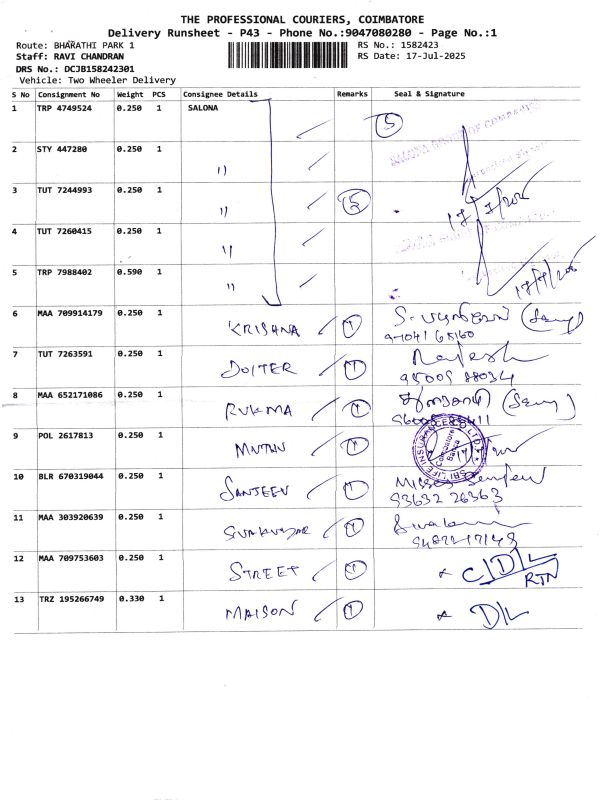 THE PROFESSIONAL COURIERS, COIMBATORE
Delivery Runsheet - P43 - Phone No.:9047080280 - Page No.:1
Route: BHARATHI PARK 1
RS No.: 1582423
Staff: RAVI CHANDRAN
RS Date: 17-Jul-2025
DRS No.: DCJB158242301
Vehicle: Two Wheeler Delivery
S No Consignment No Weight PCS Consignee Details Remarks Seal & Signature
1 TRP 4749524 0.250 1 SALONA 5
2 STY 447280 0.250 1 "
3 TUT 7244993 0.250 1 " 5
4 TUT 7260415 0.250 1 "
5 TRP 7988402 0.590 1 "
6 MAA 709914179 0.250 1 KRISHNA 1
7 TUT 7263591 0.250 1 DOITER 1 Rajesh
95005 88034
8 MAA 652171086 0.250 1 RUKMA 1
9 POL 2617813 0.250 1 1
10 BLR 670319044 0.250 1 SANJEEV 1
93632 26363
11 MAA 303920639 0.250 1 SIVAKUMAR 1
12 MAA 709753603 0.250 1 STREET 1 C/D/L
RTN
13 TRZ 195266749 0.330 1 MAISON 1 D/L